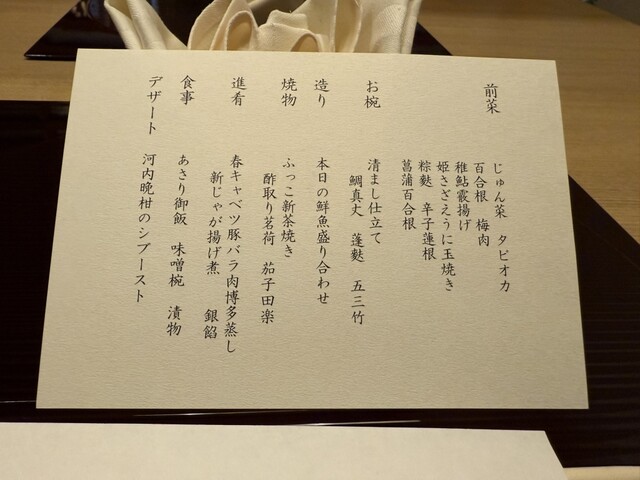 前菜
じゅん菜　タピオカ
百合根　梅肉
稚鮎霰揚げ
姫さざえうに玉焼き
粽麩　辛子蓮根
菖蒲百合根
お椀　清まし仕立て
鯛真丈　蓬麩　五三竹
造り　本日の鮮魚盛り合わせ
焼物　ふっこ新茶焼き
酢取り茗荷　茄子田楽
進肴　春キャベツ豚バラ肉博多蒸し
新じゃが揚げ煮　銀餡
食事　あさり御飯　味噌椀　漬物
デザート　河内晩柑のシブースト